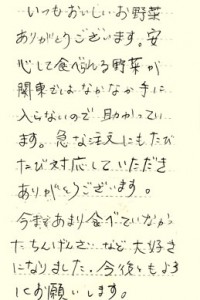 いつもおいしいお野菜
ありがとうございます。安
心して食べられる野菜が
関東ではなかなか手に
入らないので助かってい
ます。急な注文にもたび
たび対応していただき
ありがとうございます。
今まであまり食べていなかっ
たちんげんさいなど大好き
になりました。今後もよろ
しくお願いします。